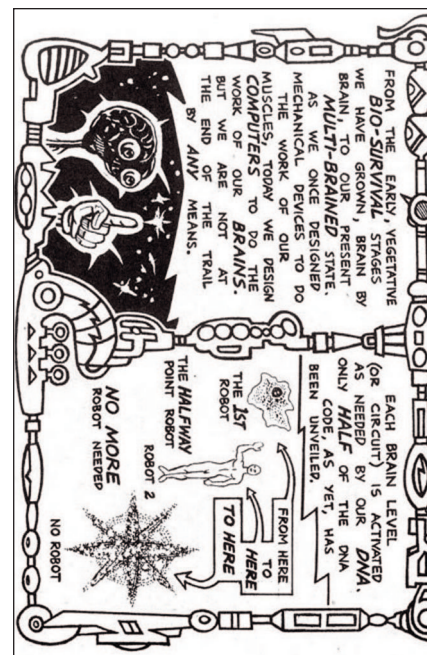 FROM THE EARLY, VEGETATIVE
BIO-SURVIVAL STAGES
WE HAVE GROWN, BRAIN BY
BRAIN, TO OUR PRESENT
MULTI-BRAINED STATE.
AS WE ONCE DESIGNED
MECHANICAL DEVICES TO DO
THE WORK OF OUR
MUSCLES, TODAY WE DESIGN
COMPUTERS TO DO THE
WORK OF OUR BRAINS.
BUT WE ARE NOT AT
THE END OF THE TRAIL
BY ANY MEANS.
EACH BRAIN LEVEL
(OR CIRCUIT) IS ACTIVATED
AS NEEDED BY OUR DNA.
ONLY HALF OF THE DNA
CODE, AS YET, HAS
BEEN UNVEILED.
FROM HERE
TO
HERE
TO HERE
THE 1ST
ROBOT
THE HALFWAY
POINT ROBOT
ROBOT 2
NO MORE
ROBOT NEEDED
NO ROBOT